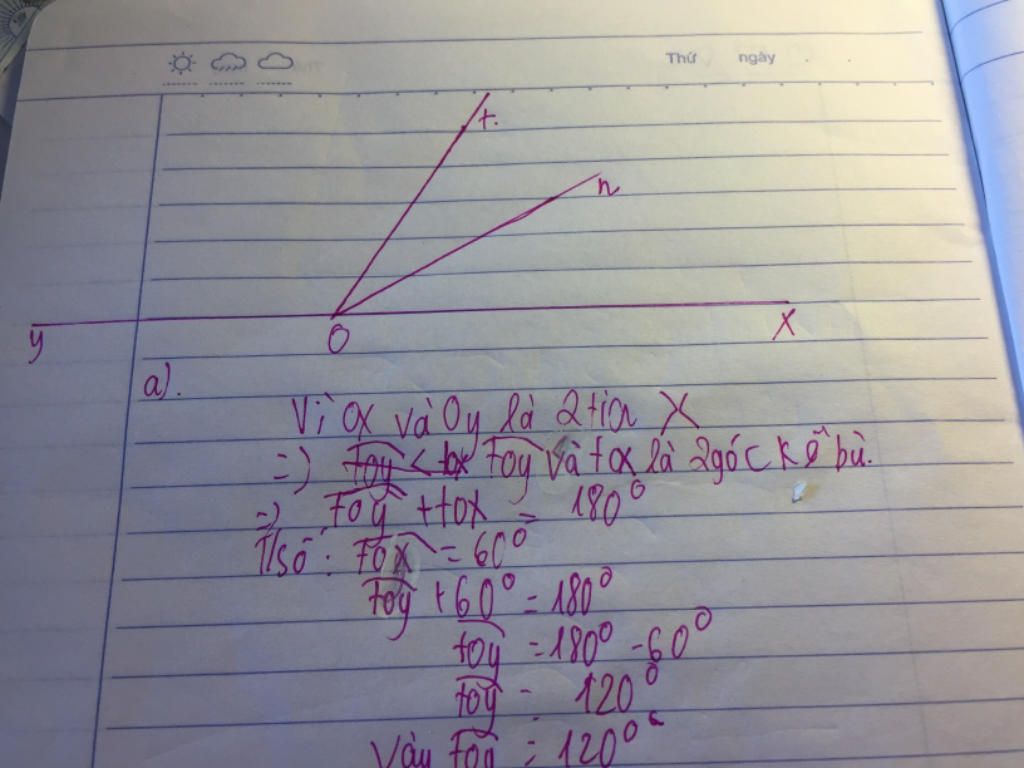 Thứ ngày
t
n
y O x
a).
Vì Ox và Oy là 2 tia X
=) toy < tox toy và tox là 2 góc kề bù.
=) toy + tox = 180°
T/số : tox = 60°
toy + 60° = 180°
toy = 180° - 60°
toy = 120°
Vậy toy = 120°